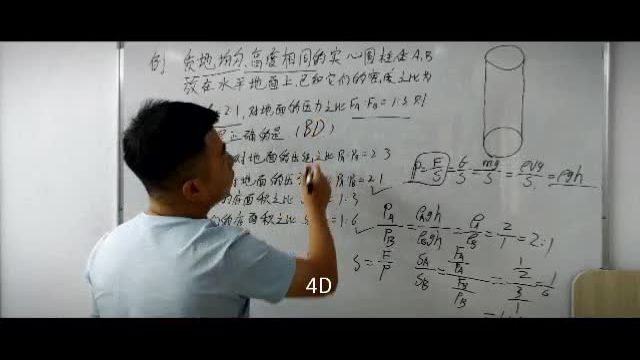 例 质地均匀、高度相同的实心圆柱体A、B
放在水平地面上,已知它们的密度之比为
2:1,对地面的压力之比FA:FB=1:3,则
正确的是(BD)
对地面的压强之比PA:PB=2:3
地面的压强之 PA:PB=2:1
底面积之比 1:3
的底面积之比 S 1:6
P=F/S=G/S=mg/S=ρVg/S=ρgh
PA/PB=ρAgh/ρBgh=ρA/ρB=2/1=2:1
S=F/P SA/SB=FA/PA/FB/PB=1/2/3/1=1/6
4D